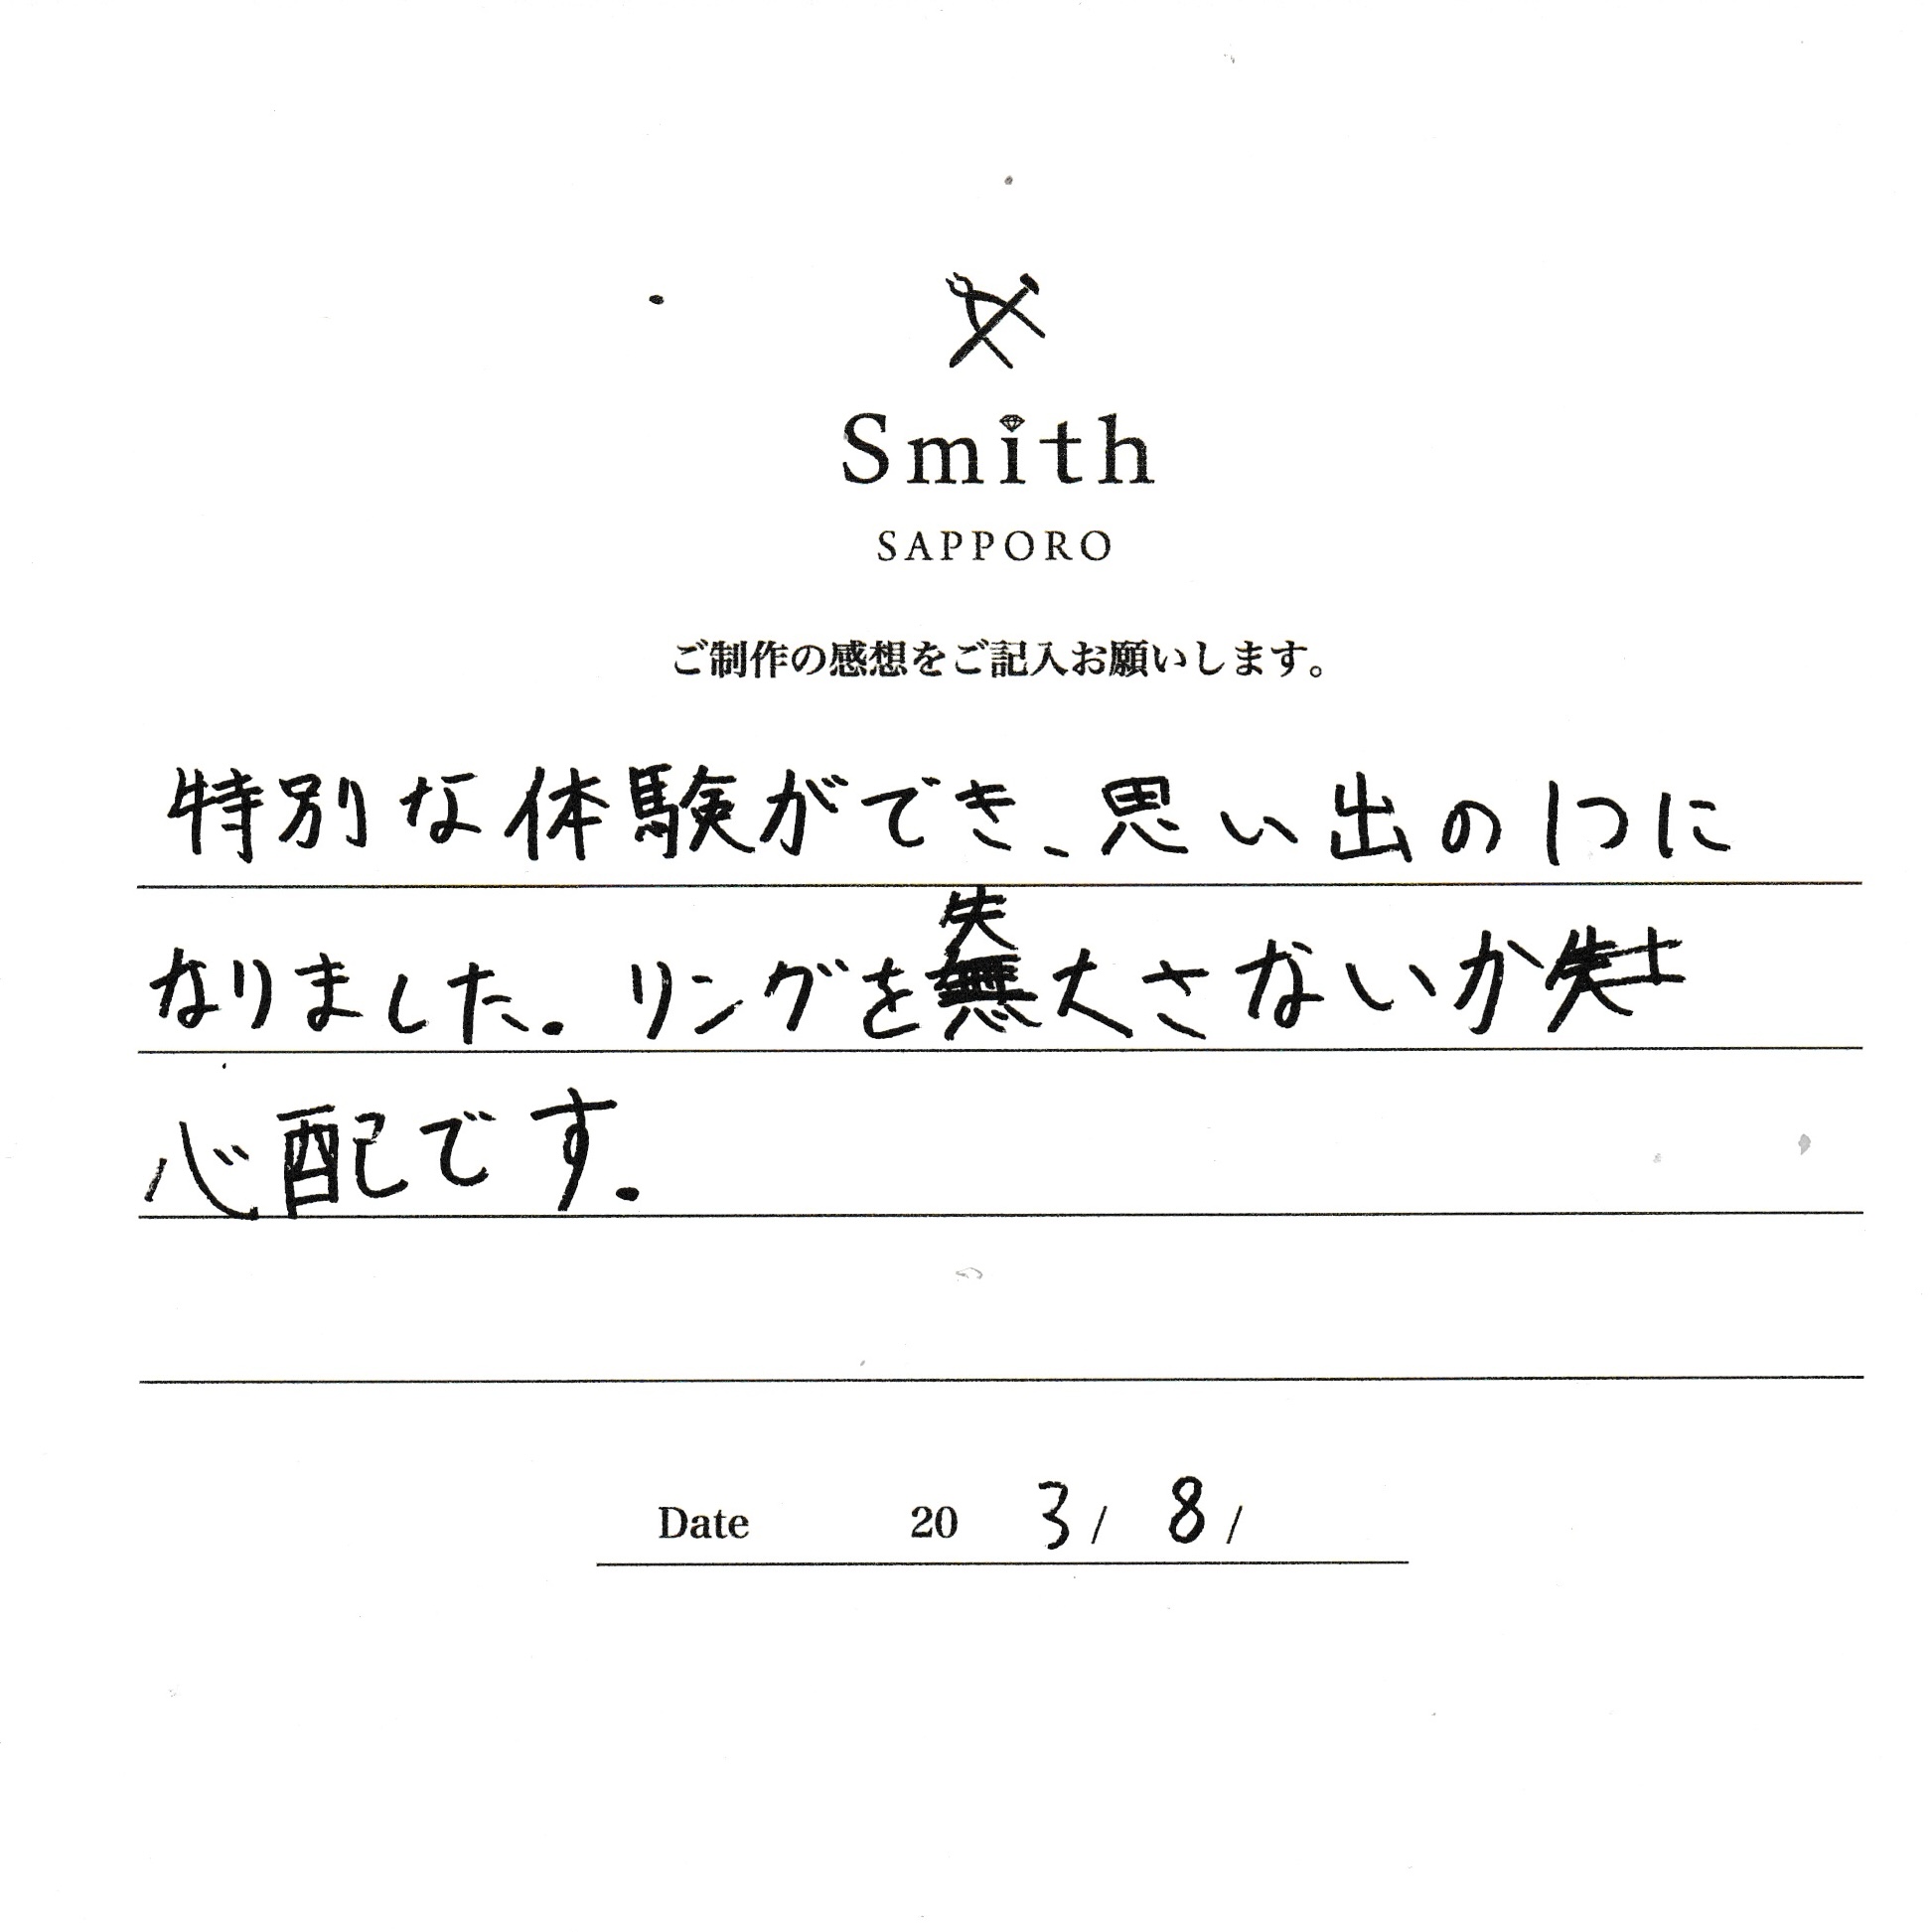 Smith
SAPPORO
ご制作の感想をご記入お願いします。
特別な体験ができ、思い出の1つに
なりました。リングを失くさないか
心配です。
Date 20 3/ 8/